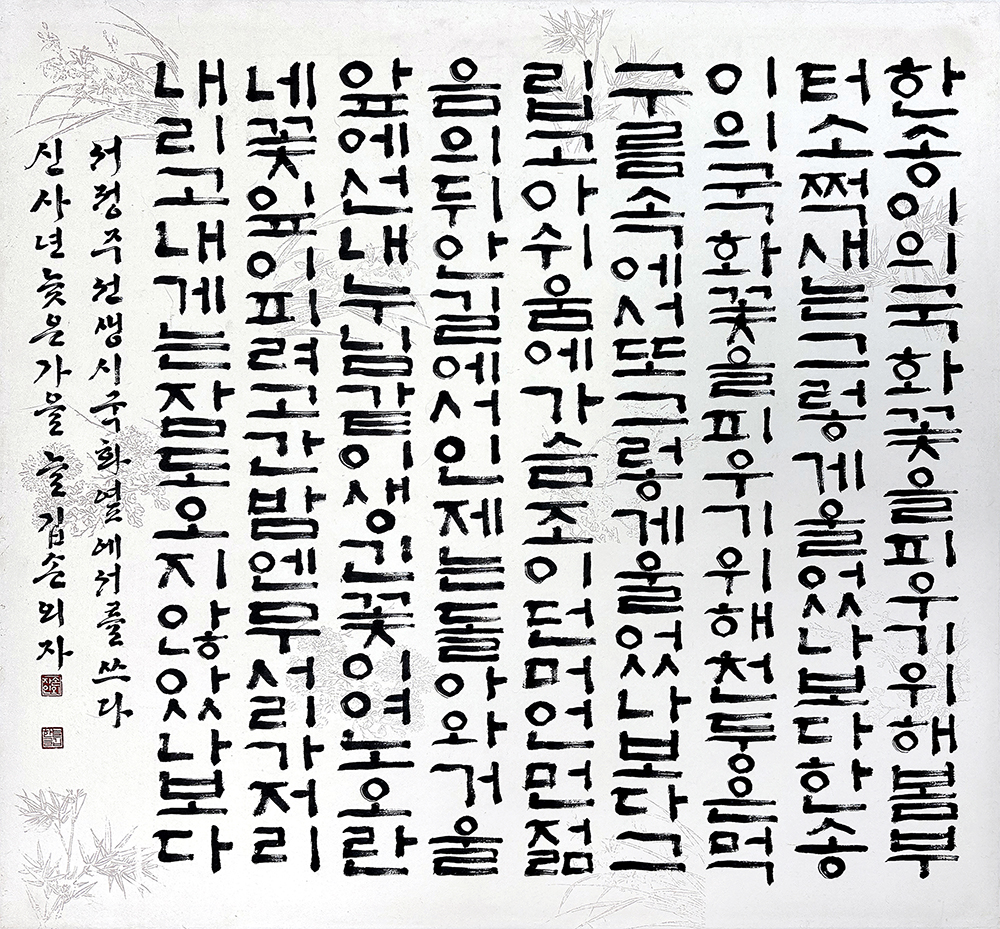 한송이의국화꽃을피우기위해봄부
터소쩍새는그렇게울었나보다한송
이의국화꽃을피우기위해천둥은먹
구름속에서또그렇게울었나보다그
립고아쉬움에가슴조이던머언먼젊
음의뒤안길에서인제는돌아와거울
앞에선내누님같이생긴꽃이여노오란
네꽃잎이피려고간밤엔무서리가저리
내리고내게는잠도오지않았나보다
서정주선생시국화옆에서를쓰다
신사년늦은가을 늘깁손외자